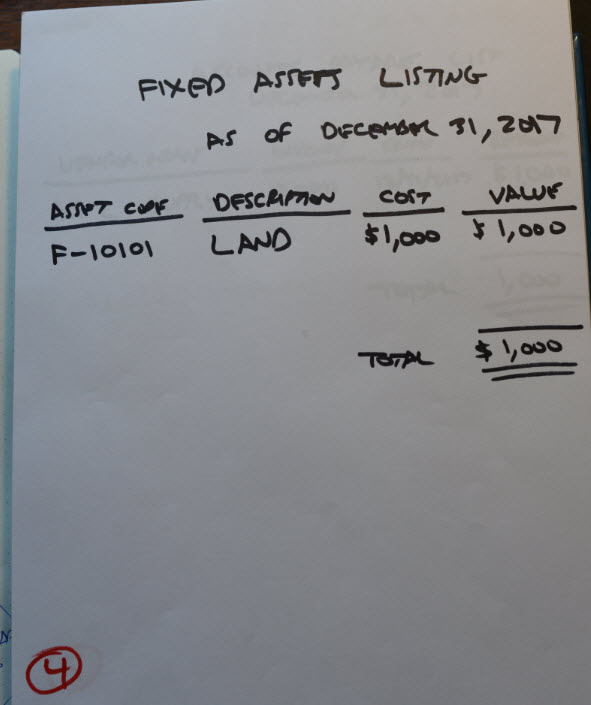 FIXED ASSETS LISTING
AS OF DECEMBER 31, 2017
ASSET CODE DESCRIPTION COST VALUE
F-10101 LAND $1,000 $1,000
TOTAL $1,000
4